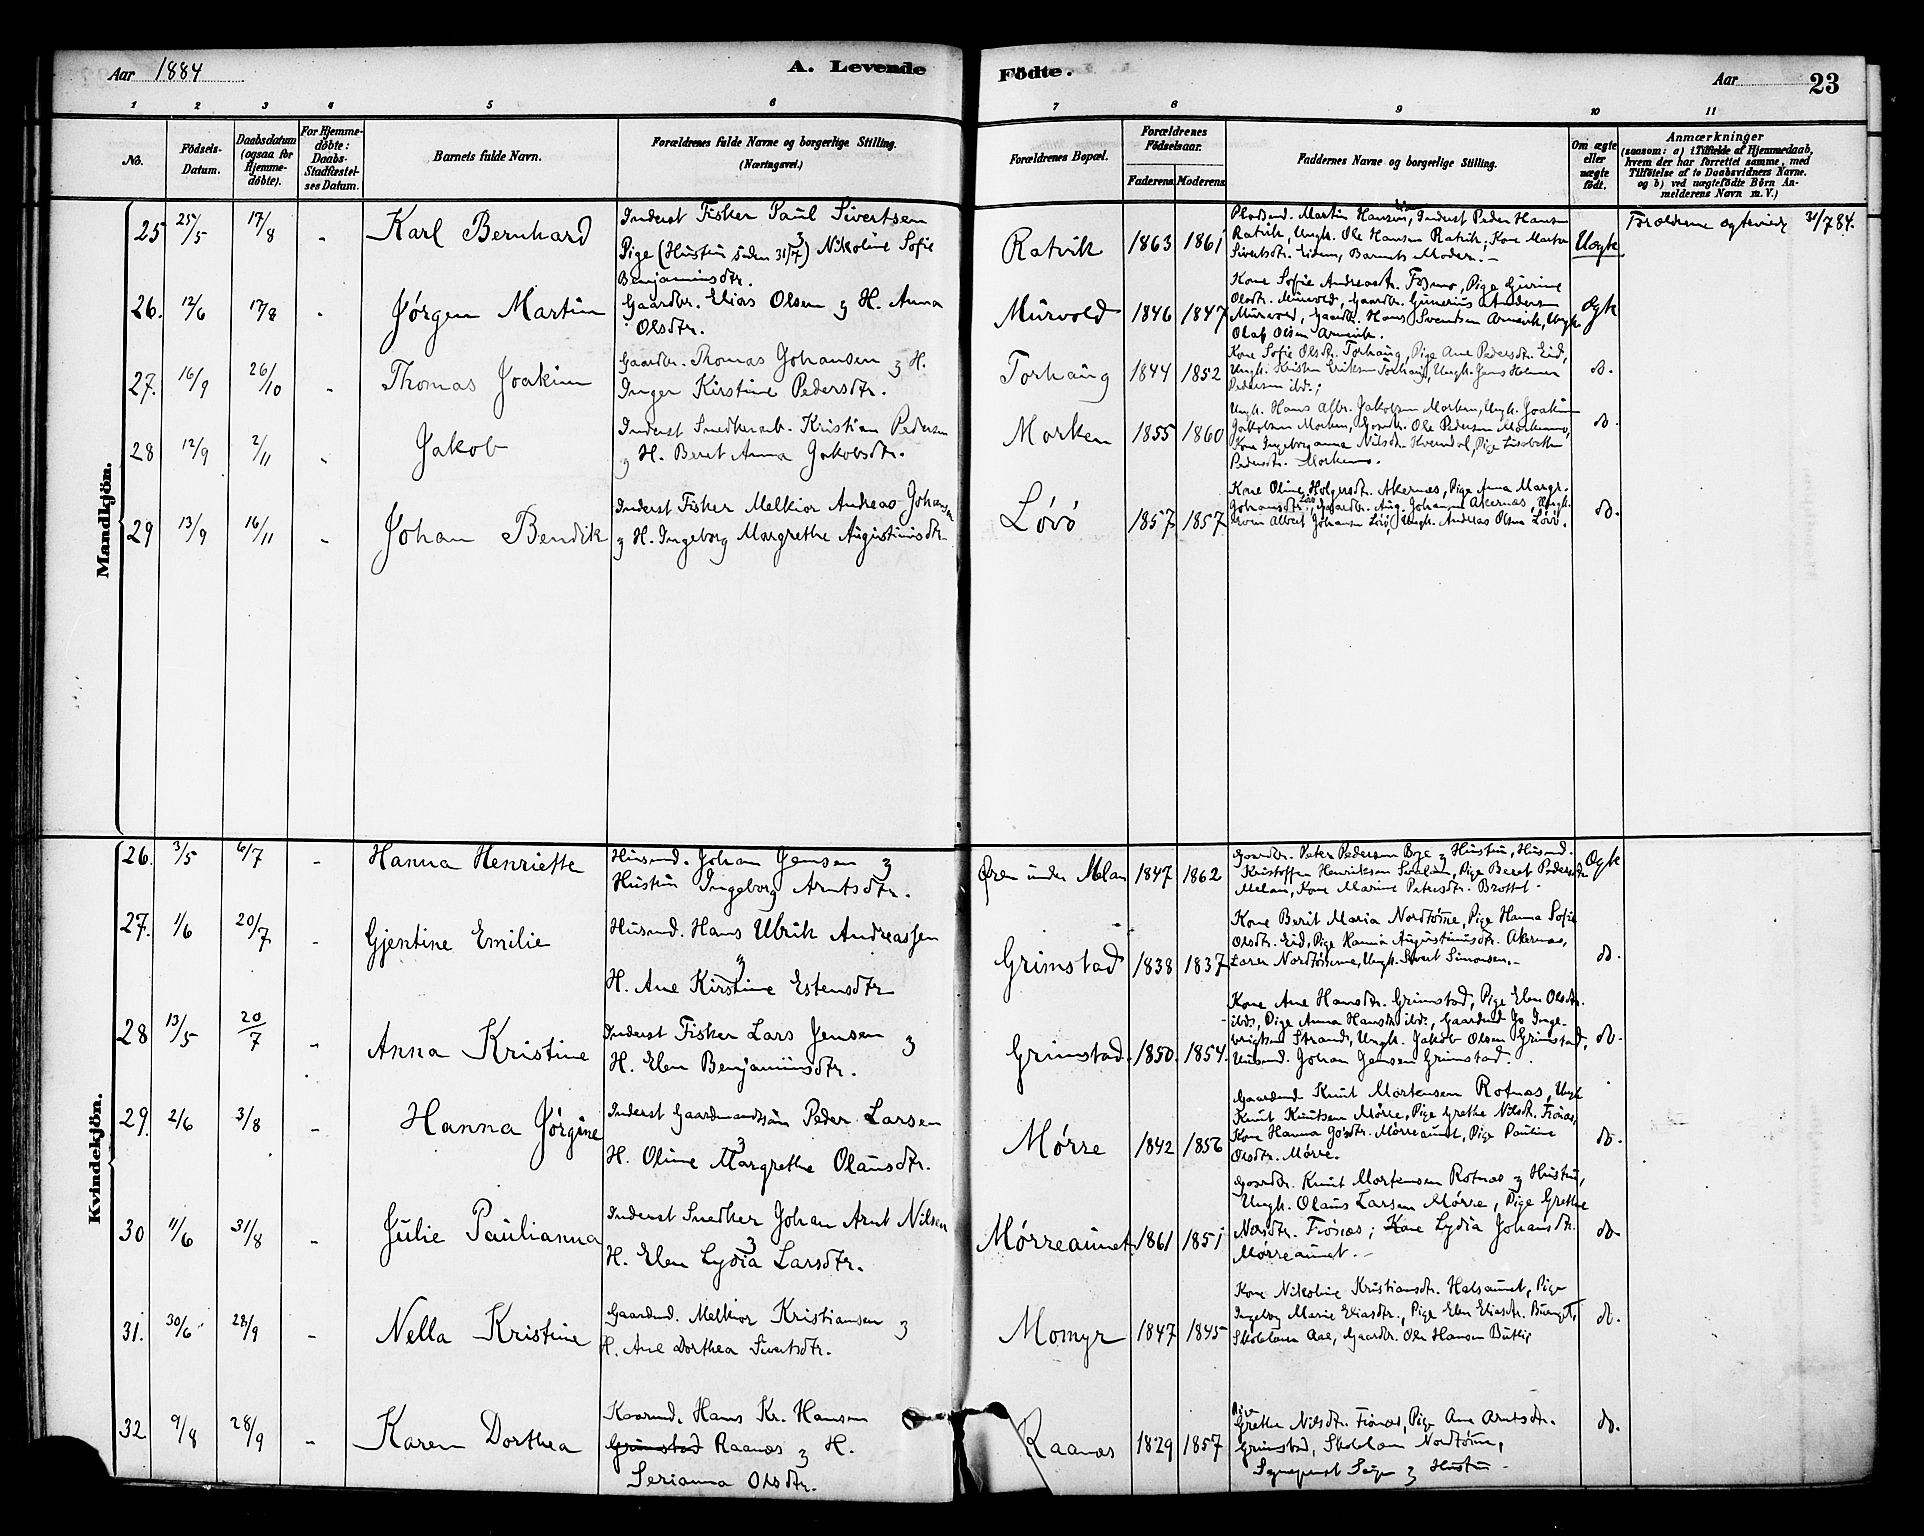 Aar 1884
A. Levende
Födte.
Aar
23
1 2 3 4 5 6 7 8 9 10 11
No.
Födsels-
Datum.
Daabsdatum
(ogsaa for
Hjemme-
döbte).
For Hjemme-
döbte:
Daabs-
Stadfæstel-
ses Datum.
Barnets fulde Navn.
Forældrenes fulde Navne og borgerlige Stilling.
(Næringsvei.)
Forældrenes Bopæl.
Forældrenes
Födselsaar.
Faderens Moderens
Faddernes Navne og borgerlige Stilling.
Om ægte
eller
uægte
födt.
Anmærkninger
(saasom: a) i Tilfælde af Hjemmedaab,
hvem der har forrettet samme, med
Tilföielse af to Daabsvidners Navne.
og b) ved uægtefödte Börn An-
melderens Navn m. V.)
Mandkjön.
25 25/5 17/8 - Karl Bernhard
Inderst Fisker Paul Sivertsen
Pige (Hustru siden 31/7) Nikoline Sofie
Benjaminsdtr.
Ratvik 1863 1861
Martin Hansen, Inderst Peder Hansen
Ratvik, Ungk. Ole Hansen Ratvik, Kone Marta
Sivertsdtr. Eidem, Barnets Moder. -
Uægte
31/7 84.
26. 12/6 17/8 - Jørgen Martin
Gaardbr. Elias Olsen og H. Anna
Olsdtr.
Murvold 1846 1847
Kone Sofie Andreasdtr. Fosmo, Pige Gurine
Olsdtr. Murvold, Gaardbr. Gunerius Andersen
Murvold, Gaardbr. Hans Svendsen Arnevik, Ungk.
Olaf Olsen Arnevik.
Ægte
27. 16/9 26/10 - Thomas Joakim
Gaardbr. Thomas Johansen og H.
Inger Kirstine Pedersdtr.
Torhaug 1844 1852
Kone Sofie Olsdtr. Torhaug, Pige Ane Pedersdtr. Eid,
Ungk. Kristen Eriksen Torhaug, Ungk. Jens
Pedersen ibd.;
do.
28 12/9 2/11 - Jakob
Inderst Snedkerarb. Kristian Pedersen
og H. Beret Anna Jakobsdtr.
Morken 1855 1860
Ungk. Hans Albr. Jakobsen Morken, Ungk. Joakim
Jakobsen Morken, Gaardbr. Ole Pedersen Morkemo,
Kone Ingeborganna Nilsdtr. Kverndal, Pige Lisabeth
Pedersdtr. Morkemo.
do.
29 13/9 16/11 - Johan Bendik
Inderst Fisker Melkior Andreas Johansen
og H. Ingeborg Margrethe Augustinusdtr.
Lövö 1857 1857
Kone Oline Holgersdtr. Akernæs, Pige Anna Margr.
Johansdtr. Lövö, Gaardbr. Aug. Johansen Akernæs, Ungk.
Even Albert Johansen Lövö, Ungk. Andreas Olsen Lövö.
do.
Kvindekjön.
26. 3/5 6/7 - Hanna Henriette
Husmd. Johan Jensen og
Hustru Ingeborg Arntsdtr.
Øren under Melan 1847 1862
Gaardbr. Peter Pedersen Bye og Hustru, Husmd.
Kristoffer Henriksen, Pige Beret Pedersdtr.
Melan, Kone Marine Petersdtr. Brottet -
Ægte
27. 1/6 20/7 - Gjentine Emilie
Husmd. Hans Ulrik Andreassen
og
H. Ane Kirstine Estensdtr
Grimstad 1838 1837
Kone Berit Maria Nordtömme, Pige Hanna Sofie
Olsdtr. Eid, Pige Hanna Augustinusdtr. Akernæs,
Lorens Nordtömme, Ungk. Sivert Simonsen. -
do.
28 13/5 20/7 - Anna Kristine
Inderst Fisker Lars Jensen og
H. Elen Benjaminsdtr.
Grimstad. 1850. 1854.
Kone Ane Hansdtr. Grimstad, Pige Elen Olsdtr.
ibd., Pige Anna Hansdtr. ibd., Gaardmd. Jo Inge-
brigtsen Strand, Ungk. Jakob Olsen Grimstad,
Husmd. Johan Jensen Grimstad.
do.
29. 2/6 3/8 - Hanna Jörgine
Inderst Gaardmandssön Peder Larsen
og
H. Oline Margrethe Olausdtr.
Mörre 1842 1856
Gaardmd. Knut Mortensen Rotnæs, Ungk.
Knut Knutsen Mörre, Pige Grethe Nilsdtr. Fiönæs,
Kone Hanna Josdtr. Mörreaunet, Pige Pauline
Olsdtr. Mörre.
do.
30 11/6 31/8 - Julie Paulianna
Inderst Snedker Johan Arnt Nilsen
og
H. Elen Lydia Larsdtr.
Mörreaunet 1861 1851
Gaardbr. Knut Mortensen Rotnæs og Hustru,
Ungk. Olaus Larsen Mörre, Pige Grethe
Nilsdtr. Fiönæs; Kone Lydia Johansdtr.
Mörreaunet. -
do.
31. 30/6 28/9 - Nella Kristine
Gaardmd. Melkior Kristiansen og
H. Ane Dorthea Sivertsdtr.
Momyr 1847 1845
Kone Nikoline Kristiansdtr. Halsaunet, Pige
Ingeborg Marie Eliasdtr., Pige Elen Eliasdtr.
Skolelærer Aae, Gaardbr. Ole Hansen Butli,
do.
32 9/8 28/9 - Karen Dorthea
Kaarmd. Hans Kr. Hansen
Grimstad Raanæs og H.
Serianna Olsdtr.
Raanæs 1829 1857
Pige
Grethe Nilsdtr. Fiönæs, Pige Ane Arntsdtr.
Grimstad, Skolelærer Nordtömme,
Sognepræst og Hustru -
do.